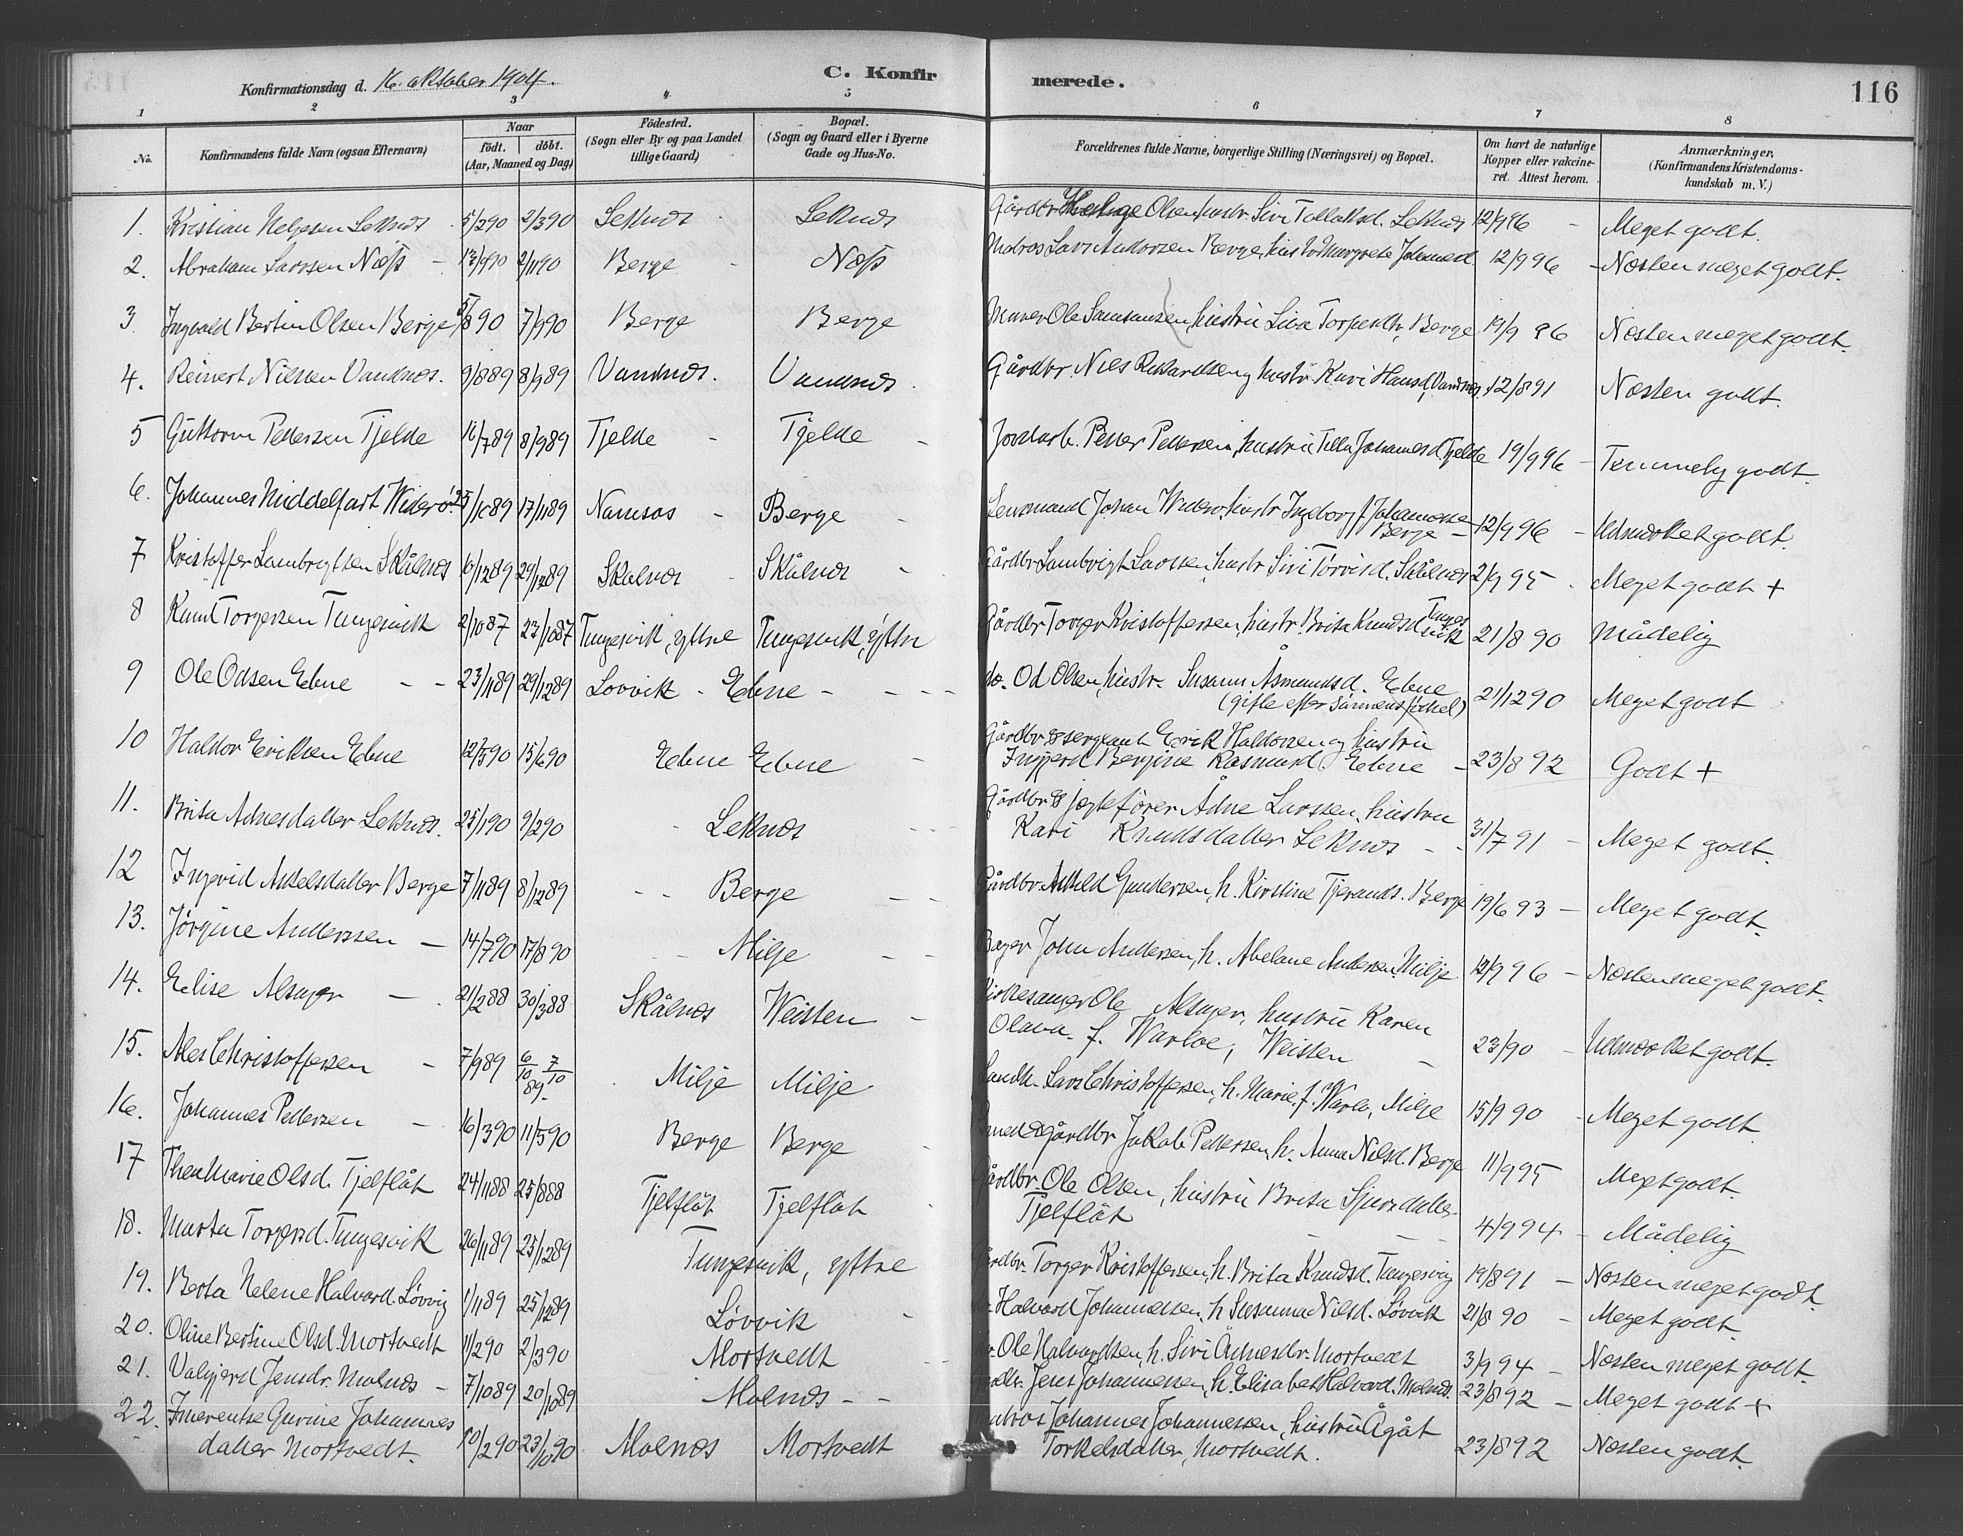 Konfirmationsdag d. 16. oktober 1904.
C. Konfirmerede.
116
1 2 3 4 5 6 7 8
No.
Konfirmandens fulde Navn (ogsaa Efternavn)
Naar født. døbt. (Aar, Maaned og Dag)
Fødested. (Sogn eller By og paa Landet tillige Gaard)
Bopæl. (Sogn og Gaard eller i Byerne Gade og Hus-No.
Forældrenes fulde Navne, borgerlige Stilling (Næringsvei) og Bopæl.
Om havt de naturlige Kopper eller vakcineret. Attest herom.
Anmærkninger. (Konfirmandens Kristendomskundskab m. V.)
1. Kristian Helgesen Leknes 5/2 90 2/3 90 Leknes Leknes Gårdbr. Helge Olsen, hustr. Siri Tollaksd. Leknes 12/9 96 - Meget godt.
2. Abraham Larssen Næss - 2/11 90 Berge - Næss Lars Andersen Berge, hustr. Margrete Johannesd. 12/9 96 - Næsten meget godt.
3. Ingvald Bertin Olsen Berge 5/8 90 7/9 90 Berge Berge Murer Ole Samsonsen, hustru Siva Berge 19/9 96 Næsten meget godt.
4. Reinert Nilsen Vandnes. 9/8 89 8/9 89 Vandnes. Vandnes. Gårdbr. Nils Rikardsen og hustr. Kari Hansd. Vandnes. 12/8 91 Næsten godt.
5 Guttorm Pettersen Tjelde 16/7 89 8/9 89 Tjelde - Tjelde - Jordarb. Petter Pettersen, hustru Tilla Johannesd. Tjelde 19/9 96 - Temmelig godt.
6. Johannes Middelfart Widerö 17/11 89 Namsos - Berge - Lensmand Johan Widerö, hustr. Ingeborg f. Johannessen Berge - 12/9 96 - Udmærket godt.
7 Kristoffer Lambrigtsen Skålnes 6/12 89 29/12 89 Skålnes - Skålnes - Gårdbr. Lambrigt Larssen, hustr. Siri Torrisd. Skålnes 2/9 95 - Meget godt +
8 Knut Torgersen Tungesvik 2/10 87 23/10 87 Tungesvik, yttre Tungesvik, yttre Gårdbr. Torger Kristoffersen, hustr. Brita Knudsd. Tungesvik 21/8 90 Mådelig
9 Ole Odsen Ebne - - 23/11 89 29/12 89 Lovvik - Ebne - - - - do. Od Olsen, hustr. Susanna Åsmundsd. Ebne (gifte efter sönnens födsel) 21/12 90 Meget godt
10 Haldor Eriksen Ebne 12/5 90 15/6 90 Ebne Ebne - Gårdbr. & sergeant Erik Haldorsen og hustru
Ingjerd Bergine Rasmusd. Ebne - 23/8 92 Godt +
11. Brita Adnesdatter Leknes. 25/1 90 9/2 90 Leknes - - - Gårdbr. & jægtefører Ådne Larssen, hustru
Kari Knudsdatter Leknes - - 31/7 91 - Meget godt.
12 Ingerid Askelsdatter Berge 7/11 89 8/12 89 - - Berge - - Gårdbr. Askild Gundersen, h. Kirstine Tjerands. Berge 19/6 93 - Meget godt.
13. Jørgine Anderssen - 14/7 90 17/8 90 - - Milje - - Bager John Andersen, h. Abelone Andersen, Milje 12/9 96 - Næsten meget godt.
14. Elise Alsager - . 21/2 88 30/3 88 Skålnes Weisten - Kirkesanger Ole Alsager, hustru Karen
Olava f. Warloe, Weisten - 23/90 - Udmærket godt.
15. Ales Christoffersen - 7/9 89 6/10 7/10 89. Milje Milje Landh. Lars Christoffersen, h. Marie f. Warlo, Milje 15/9 90 - Meget godt.
16. Johannes Pettersen - 16/3 90 11/5 90 Berge Berge - Smed & gårdbr. Jakob Pettersen, h. Anna Nilsd. Berge 11/9 95 - Meget godt.
17 Thea Marie Olsd. Tjelflåt 24/11 88 25/8 88 Tjelflåt Tjelflåt - Gårdbr. Ole Olsen, hustru Brita Sjursdatter
Tjelflåt - - 4/9 94 - Mådelig
18. Marta Torgersd. Tungesvik 26/11 89 25/12 89 Tungesvik, yttre Gårdbr. Torger Kristoffersen, h. Brita Knudsd. Tungesvig 19/8 91 - Næsten meget godt.
19. Berta Helene Halvard. Lövvig 1/11 89 25/12 89 Lövvik - Halvard Johannessen, h. Susanna Nilsd. Lövvik 21/8 90 - Meget godt.
20. Oline Bertine Olsd. Mortvedt 11/2 90 2/3 90 Mortvedt - - Ole Halvardsen, h. Siri Ådnesdr. Mortvedt 3/9 94 - Næsten meget godt.
21. Valgjerd Jensdr. Molnes - 7/10 89 20/10 89 Molnes - - Jens Johannessen, h. Elisabet Halvard. Molnes. 23/8 92 - Meget godt +
22. Imerentse Gurine Johannes
datter Mortvedt. 10/2 90 23/10 90 Molnes Mortvedt Johannes Johannesen, hustru Ågåt
Torkelsdatter, Mortvedt. 23/8 92 Næsten godt.